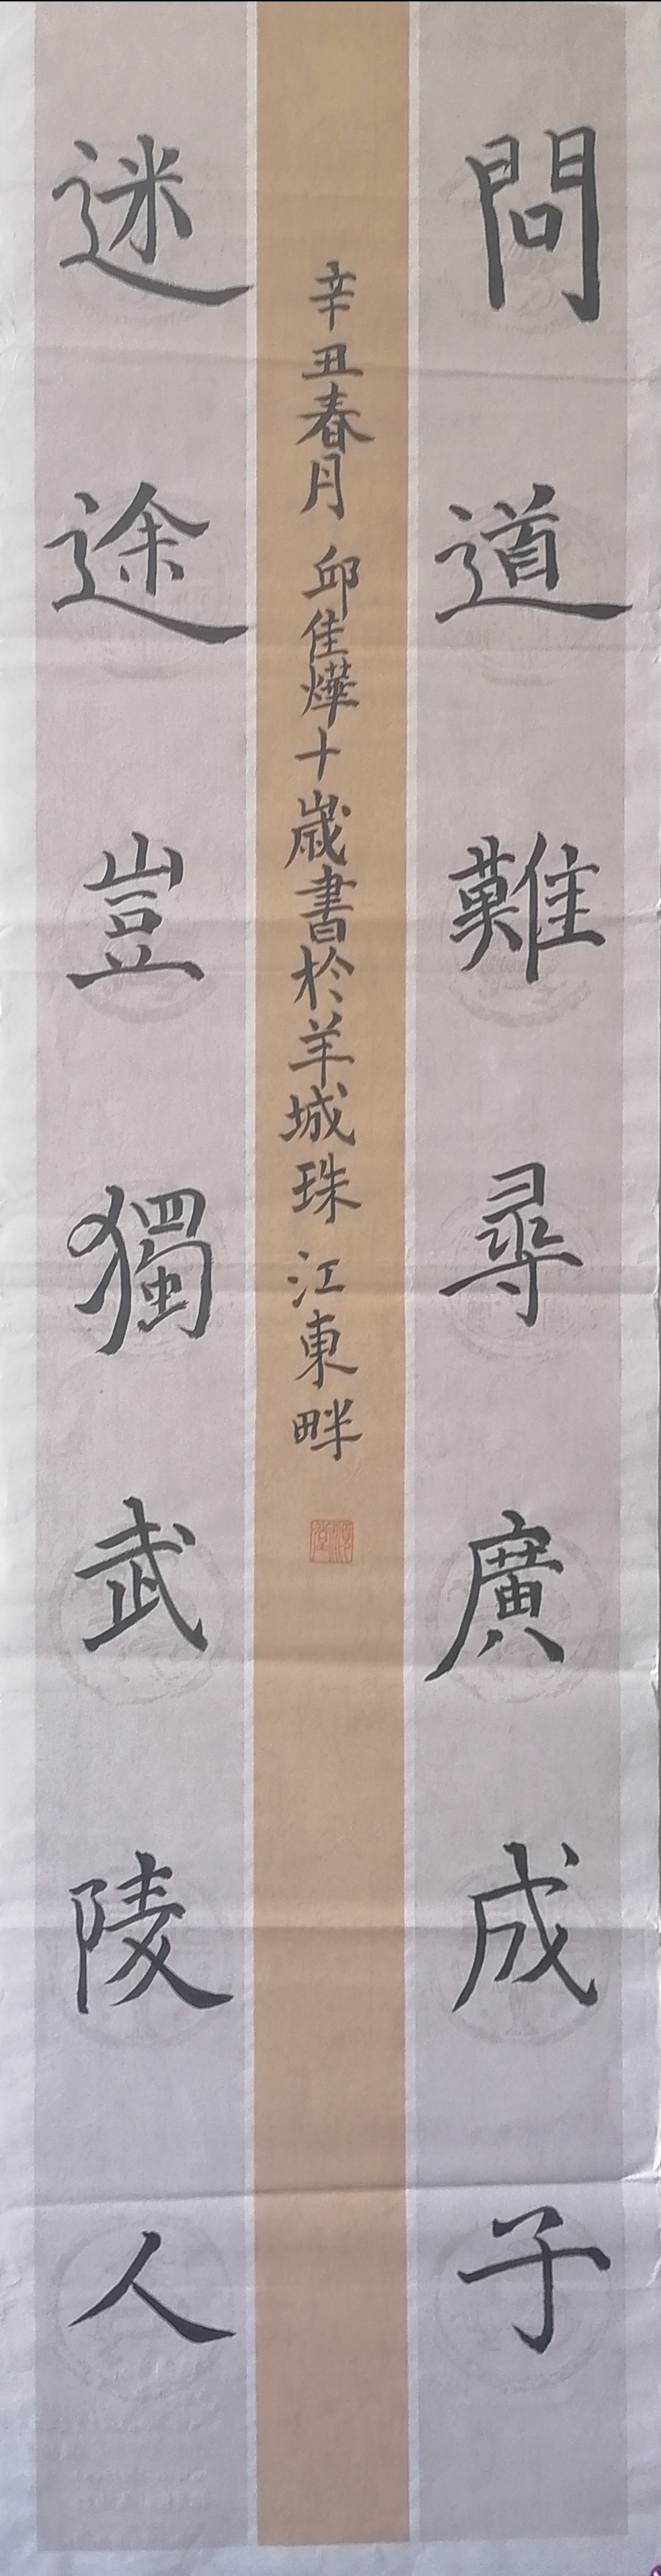 問道難尋廣成子
辛丑春月 邱佳燁十歲書於羊城珠江東畔
迷途豈獨武陵人